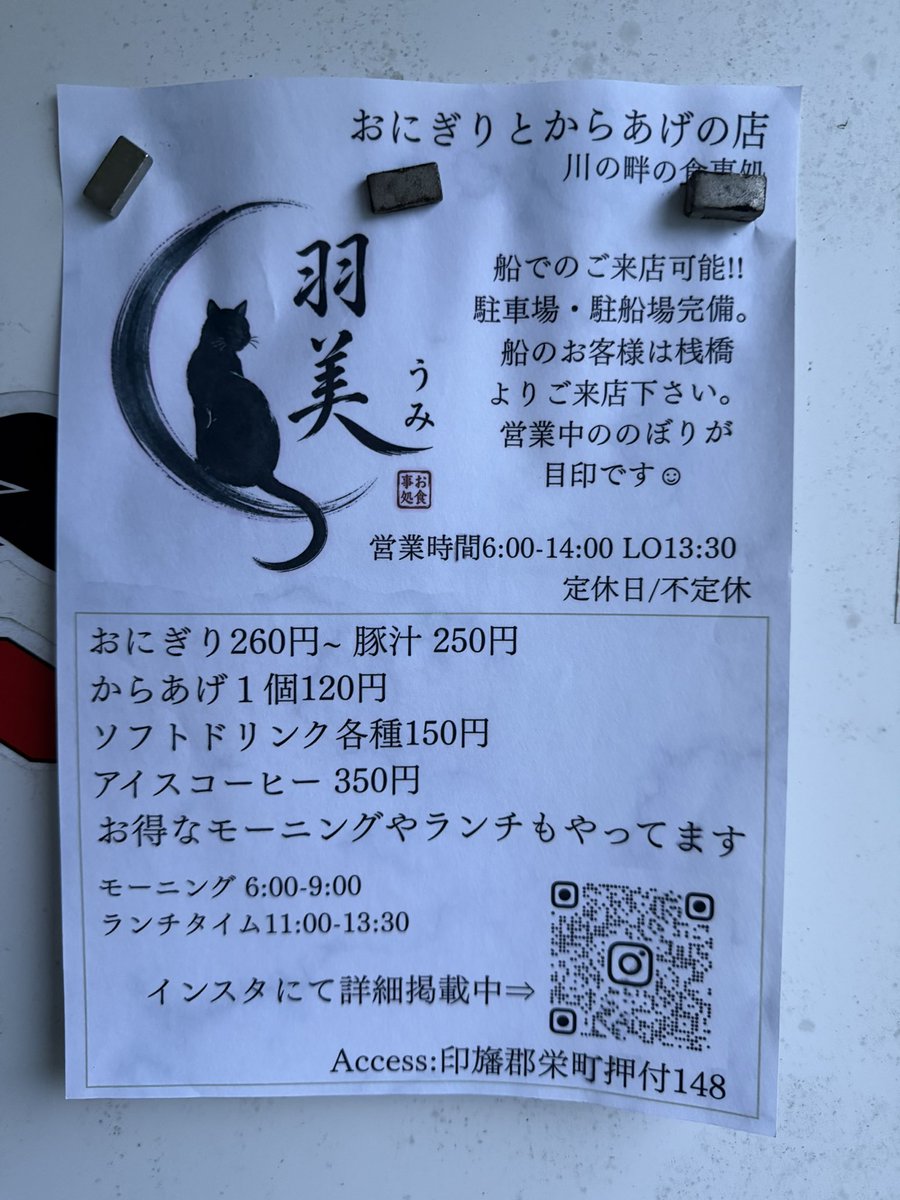 おにぎりとからあげの店
川の畔の食事処
羽美
うみ
お食
事処
船でのご来店可能!!
駐車場・駐船場完備。
船のお客様は桟橋
よりご来店下さい。
営業中ののぼりが
目印です☺
営業時間6:00-14:00 LO13:30
定休日/不定休
おにぎり260円~ 豚汁 250円
からあげ１個120円
ソフトドリンク各種150円
アイスコーヒー 350円
お得なモーニングやランチもやってます
モーニング 6:00-9:00
ランチタイム11:00-13:30
インスタにて詳細掲載中⇒
Access:印旛郡栄町押付148